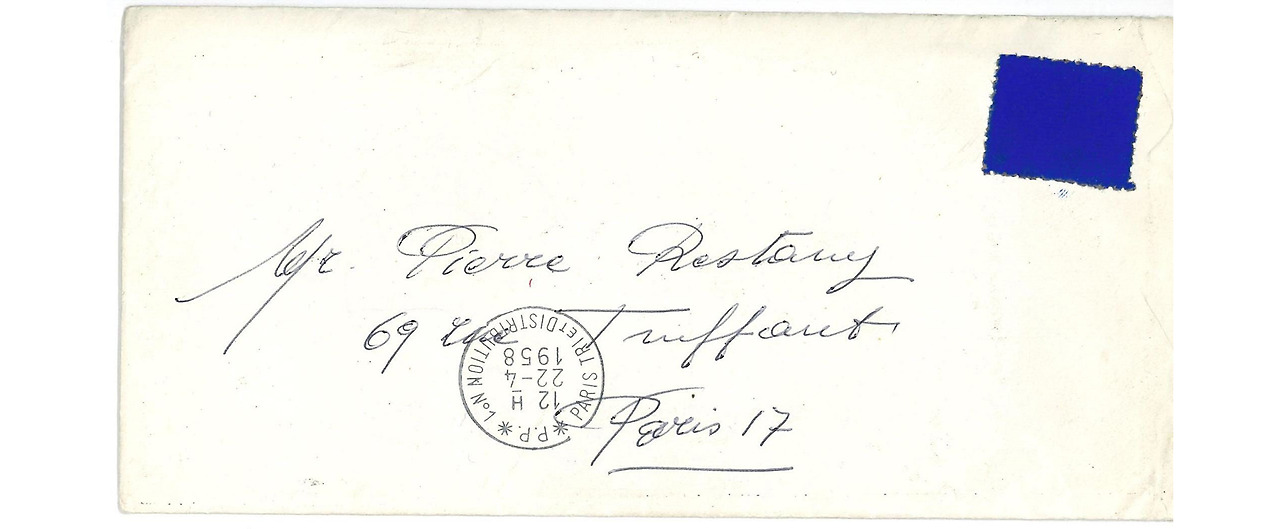 Mr. Pierre Restany
69 rue Truffaut
Paris 17
PARIS TRI ET DISTRIBUTION No1
* P.P. *
12 H
22-4
1958